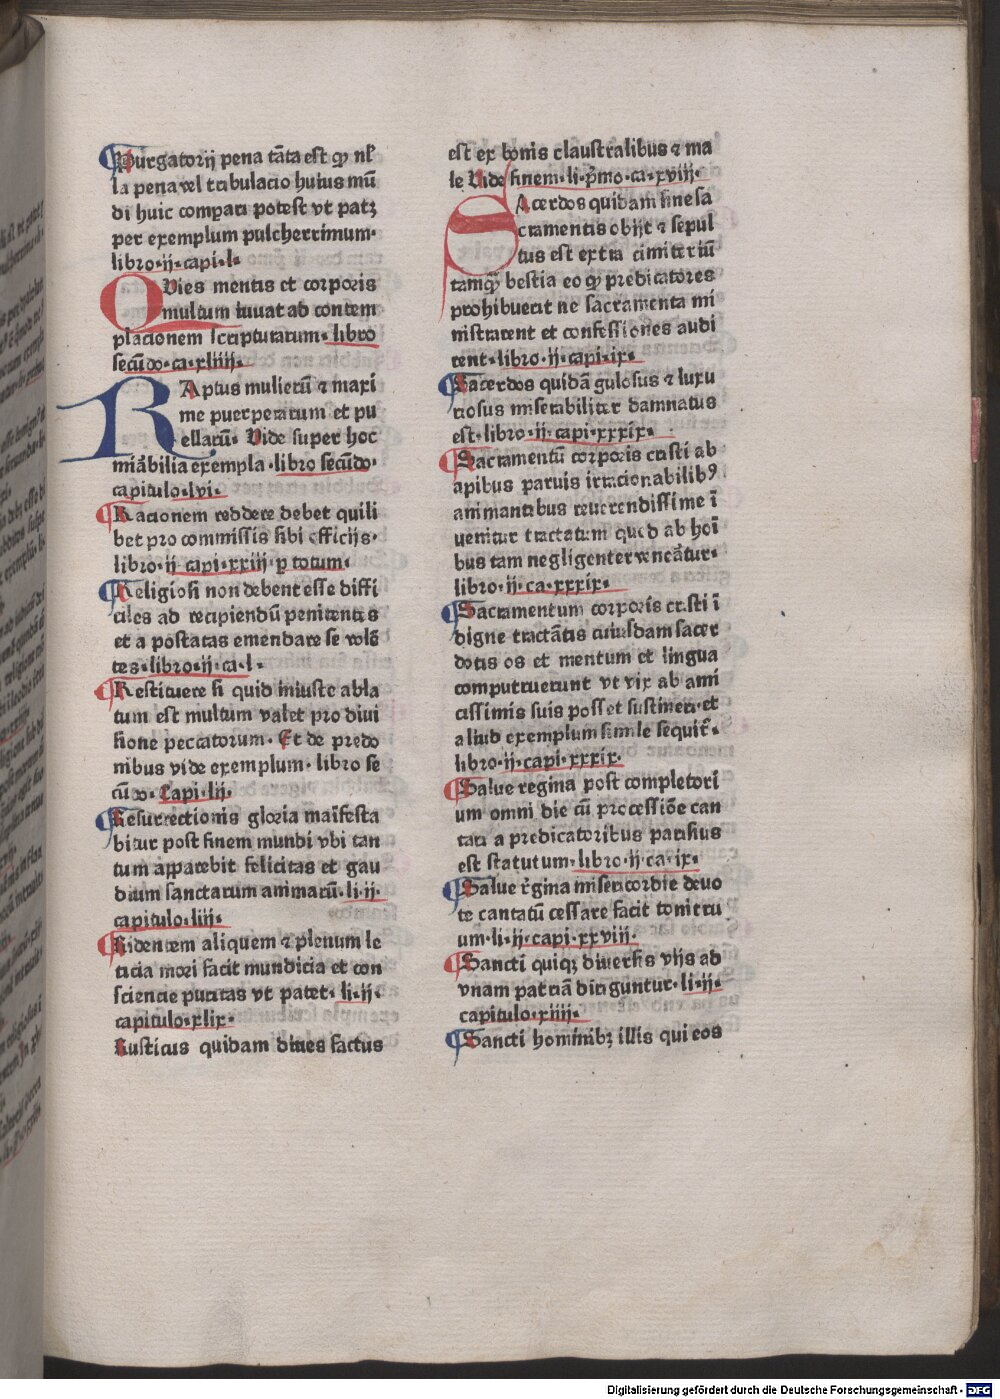 Purgatorij pena tāta est qꝫ nl̄
la pena vel tribulacio huius mū
di huic compari potest vt patꝫ
per exemplum pulcherrimum·
libro·ij·capi·l·
Quies mentis et corporis
multum iuuat ad contem
placionem scripturarum· libro
secūdo·ca·xliiij·
RAptus mulierū ⁊ maxi
me puerperarum et pu
ellarū· Vide super hoc
mirabilia exempla·libro secūdo·
capitulo·lvi·
Racionem reddere debet quili
bet pro commissis sibi officijs·
libro·ij·capi·xxiij·p totum·
Religiosi non debent esse diffi
ciles ad recipiendū penitentes
et a postatas emendare se volē
tes·libro·ij·ca·l·
Restituere si quid iniuste abla
tum est multum valet pro diui
sione peccatorum· Et de predo
nibus vide exemplum· libro se
cūdo·Capi·lij·
Resurrectionis gloria maīfesta
bitur post finem mundi vbi tan
tum apparebit felicitas et gau
dium sanctarum animarū·li·ij·
capitulo·liij·
Ridentem aliquem ⁊ plenum le
ticia mori facit mundicia et con
sciencie puritas vt patet·li·ij·
capitulo·xlix·
Rusticus quidam diues factus
est ex bonis claustralibus ⁊ ma
le Vide finem·li·p̄mo·ca·xviij·
SAcerdos quidam sine sa
cramentis obijt ⁊ sepul
tus est extra cimiteriū
tamqꝫ bestia eo qꝫ predicatores
prohibuerāt ne sacramenta mi
nistrarent et confessiones audi
rent·libro·ij·capi·ix·
Sacerdos quidā gulosus ⁊ luxu
riosus miserabiliter damnatus
est·libro·ij·capi·xxxix·
Sacramentū corporis cristi ab
apibus paruis irracionabilibꝰ
animantibus reuerendissime ī
uenitur tractatum quod ab hoī
bus tam negligenter venerātur·
libro·ij·ca·xxxix·
Sacramentum corporis cristi ī
digne tractātis cuiusdam sacer
dotis os et mentum et lingua
computruerunt vt vix ab ami
cissimis suis posset sustineri·et
aliud exemplum simile sequit̄·
libro·ij·capi·xxxix·
Salue regina post completori
um omni die cū processiōe can
tari a predicatoribus parisius
est statutum·libro·ij·ca·ix·
Salue r̄gina misericordie deuo
te cantatū cessare facit tonitru
um·li·ij·capi·xxviij·
Sancti quiqꝫ diuersis vijs ad
vnam patriā diriguntur·li·ij·
capitulo·xiiij·
Sancti hominibꝫ illis qui eos
Digitalisierung gefördert durch die Deutsche Forschungsgemeinschaft - DFG